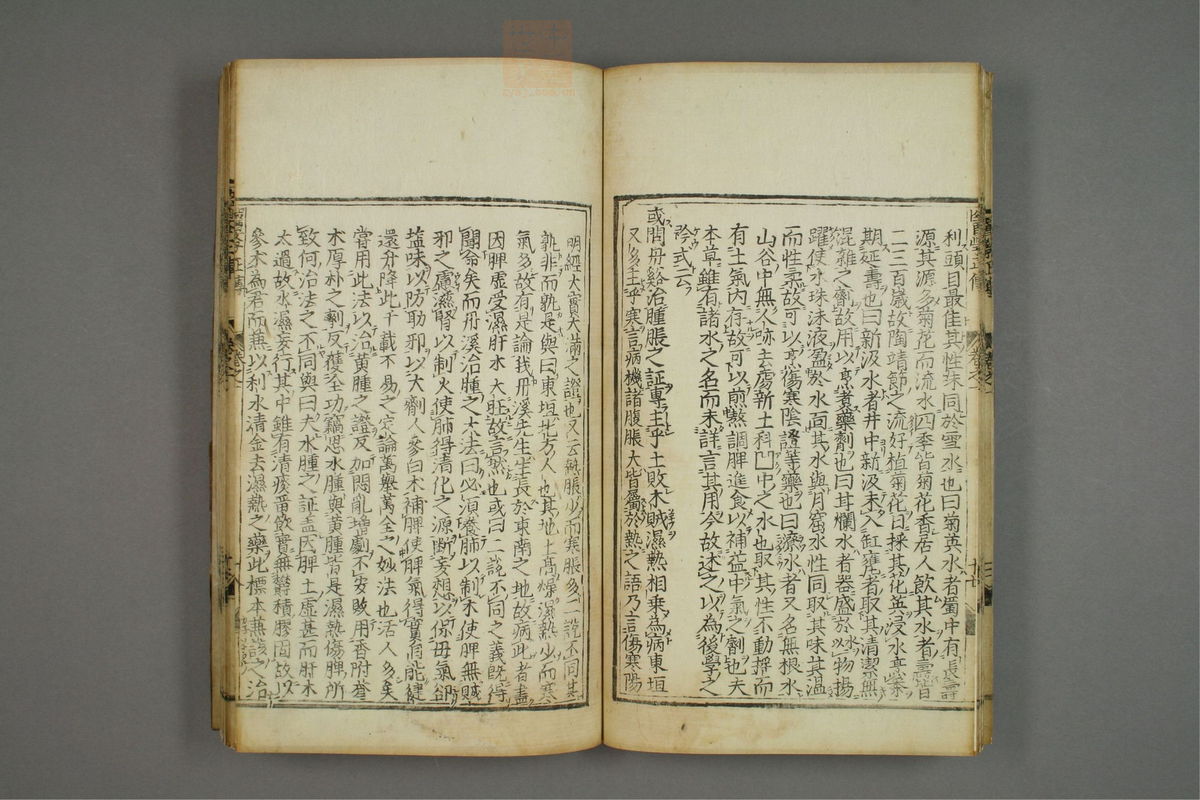 利頭目最佳其性味同於雪水也曰菊英水者蜀中有長壽
源其源多菊花而流水四季皆菊花香居人飲其水者壽皆
二三百歲故陶靖節之流好植菊花日採其花英浸水烹茶
期延壽也曰新汲水者井中新汲未入缸甕者取其清潔無
混雜之齊故用以烹煮藥劑也曰甘爛水者器盛於以物揚
躍使水珠沫液盈於水面其水與月窟水性同取其味甘溫
而性柔故可以烹傷寒陰證等藥也曰潦水者又名無根水
山谷中無人跡去處新土科凹中之水也取其性不動搖而
有土氣內存故可以煎熬調脾進食以補益中氣之劑也夫
本草雖有諸水之名而未詳言其用今故述之以為後學之
矜式云
或問丹谿治腫脹之証專主乎土敗木賊濕熱相乗為病東垣
又多主乎寒言病機諸腹脹大皆屬於熱之語乃言傷寒陽
明經大實大滿之證也又云熱脹少而寒脹多二說不同其
孰非而孰是與曰東垣北方人也其地土高燥濕熱少而寒
氣多故有是論我丹溪先生生長於東南之地故病此者盡
因脾虛受濕肝木大旺故言然也或曰二說不同之義旣得
聞命矣而丹溪治腫之大法曰必須養肺以制木使脾無賊
邪之慮滋腎以制火使肺得清化之源断妄想以保母氣却
盐味以防助邪以大劑人參白木補脾使脾氣得實自能健
運升降此千載不易之定論萬擧萬全之妙法也活人多矣
嘗用此法以治黃腫之證反加悶亂增劇不安敗用香附蒼
木厚朴之劑反獲全功竊思水腫與黃腫皆是濕熱傷脾所
致何治法之不同與曰夫水腫之証盖因脾土虛甚而肝木
太過故水濕妄行其中雖有清痰畱飲實無欝積膠固故以
參木為君而兼以利水清金去濕熱之藥此標本兼該之治